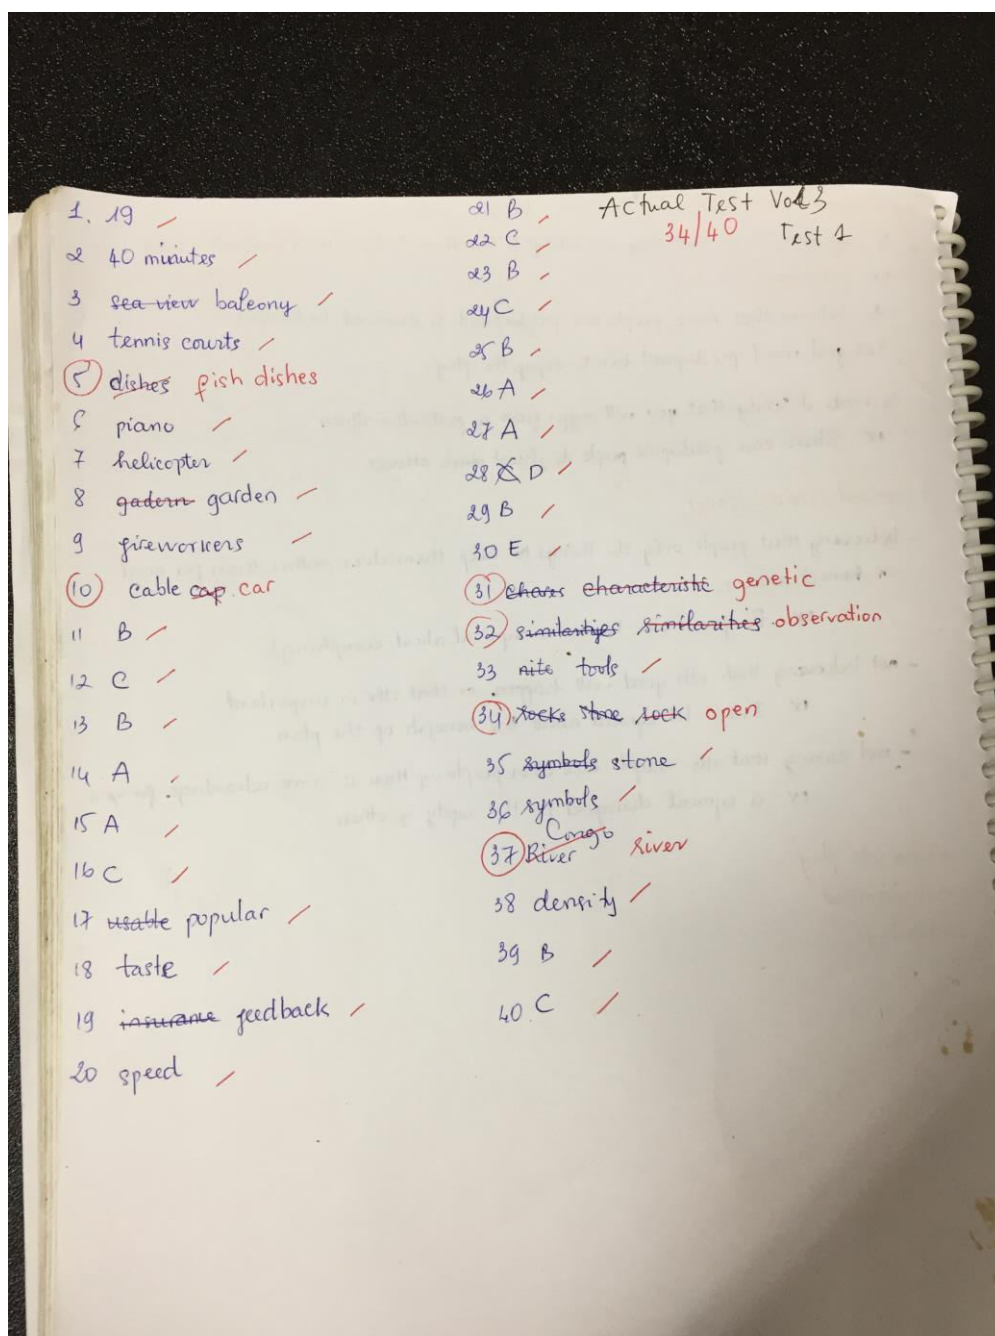 1. 19
2 40 minutes
3 sea view balcony
4 tennis courts
5 dishes fish dishes
6 piano
7 helicopter
8 gadern garden
9 fireworkers
10 cable cap. car
11 B
12 C
13 B
14 A
15 A
16 C
17 usable popular
18 taste
19 insurance feedback
20 speed
Actual Test Vol 3
34/40 Test 1
21 B
22 C
23 B
24 C
25 B
26 A
27 A
28 D
29 B
30 E
31 chares characteristic genetic
32 similarities observation
33 nite tools
34 rocks stone rock open
35 symbols stone
36 symbols
Congo
37 River river
38 density
39 B
40. C